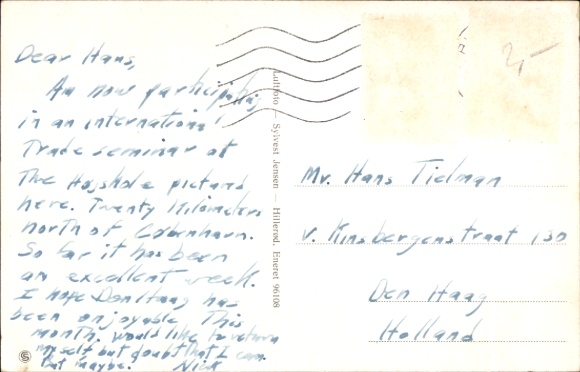 Dear Hans,
Am now participating
in an international
Trade seminar at
The Højskole pictured
here. Twenty Kilometers
north of Cobenhavn.
So far it has been
an excellent week.
I hope Den Haag has
been enjoyable This
month. would like to return
myself but doubt that I can.
But maybe. Nick
Luftfoto — Sylvest Jensen — Hillerød. Eneret 96108
2,-
Mr. Hans Tielman
v. Kinsbergenstraat 130
Den Haag
Holland